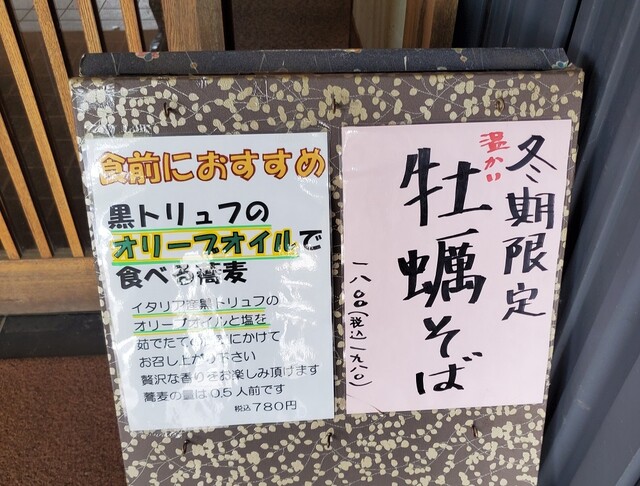 食前におすすめ
黒トリュフの
オリーブオイルで
食べる蕎麦
イタリア産黒トリュフの
オリーブオイルと塩を
茹でたての
にかけて
お召し上がり下さい
贅沢な香りをお楽しみ頂けます
蕎麦の
は0.5人前です
税込780円
冬期限定
温かい
牡蠣そば
一八00(税込一九八0)